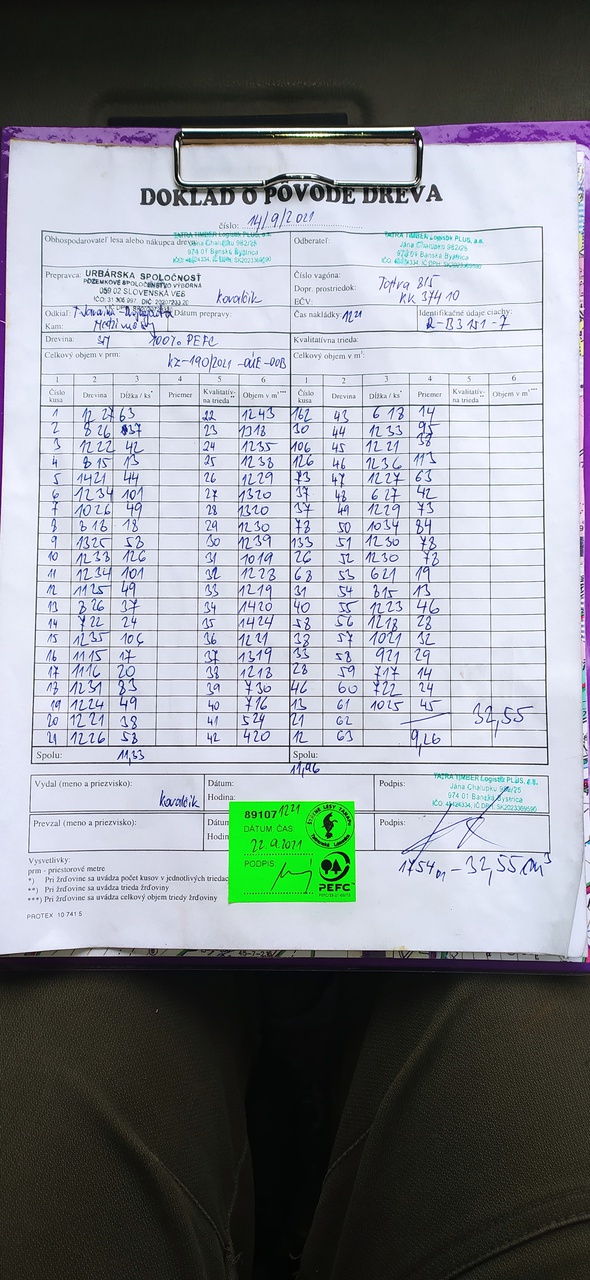 DOKLAD O PÔVODE DREVA
číslo: 14/9/2021
Obhospodarovateľ lesa alebo nákupca dreva
TATRA TIMBER Logistik PLUS, s.r.o.
Jána Chalupku 982/25
974 01 Banská Bystrica
Odberateľ:
TATRA TIMBER Logistik PLUS, s.r.o.
Jána Chalupku 982/25
974 01 Banská Bystrica
Prepravca: URBÁRSKA SPOLOČNOSŤ
POZEMKOVÉ SPOLOČENSTVO VÝBORNÁ
059 02 SLOVENSKÁ VES
Kovalčik
Číslo vagóna:
Dopr. prostriedok: Tatra 815
EČV: KK 374 10
Odkiaľ:
Kam:
Dátum prepravy:
Čas nakládky: 1221
Identifikačné údaje ciachy:
Drevina: SM 100% PEFC
Kvalitatívna trieda:
Celkový objem v prm: KZ-190/2021 -OÚE-OOB
Celkový objem v m³:
1 2 3 4 5 6 1 2 3 4 5 6
Číslo kusa Drevina Dĺžka / ks* Priemer Kvalitatív-na trieda** Objem v m³*** Číslo kusa Drevina Dĺžka / ks* Priemer Kvalitatív-na trieda** Objem v m³***
1 12 27 63 22 1243 162 43 618 14
2 8 26 37 23 1318 30 44 1233 95
3 1222 42 24 1235 106 45 1221 38
4 8 15 13 25 1238 126 46 1236 113
5 1421 44 26 1229 73 47 1227 63
6 1234 101 27 1320 37 48 627 42
7 1026 49 28 1320 37 49 1229 73
8 818 18 29 1230 78 50 1034 84
9 1325 58 30 1239 133 51 1230 78
10 1238 126 31 1019 26 52 1230 78
11 1234 101 32 1228 68 53 621 19
12 1125 49 33 1219 31 54 815 13
13 8 26 37 34 1420 40 55 1223 46
14 722 24 35 1424 58 56 1218 28
15 1235 106 36 1221 38 57 1021 32
16 1115 17 37 1319 33 58 921 29
17 1116 20 38 1218 28 59 717 14
18 1231 83 39 730 46 60 722 24
19 1224 49 40 716 13 61 1025 45
32,55
20 1221 38 41 524 21 62
21 1226 58 42 420 12 63 9,26
Spolu: 11,33
Spolu:
11,96
Vydal (meno a priezvisko):
Kovalčik
Dátum:
Hodina:
Podpis:
TATRA TIMBER Logistik PLUS, s.r.o.
Jána Chalupku 982/25
974 01 Banská Bystrica
Prevzal (meno a priezvisko):
Podpis:
89107 1221
DÁTUM, ČAS
22.9.2021
PODPIS:
PEFC
1754 01 - 32,55 m³
Vysvetlivky:
prm - priestorové metre
*) Pri žrďovine sa uvádza počet kusov v jednotlivých triedach
**) Pri žrďovine sa uvádza trieda žrďoviny
***) Pri žrďovine sa uvádza celkový objem triedy žrďoviny
PROTEX 10 741 5